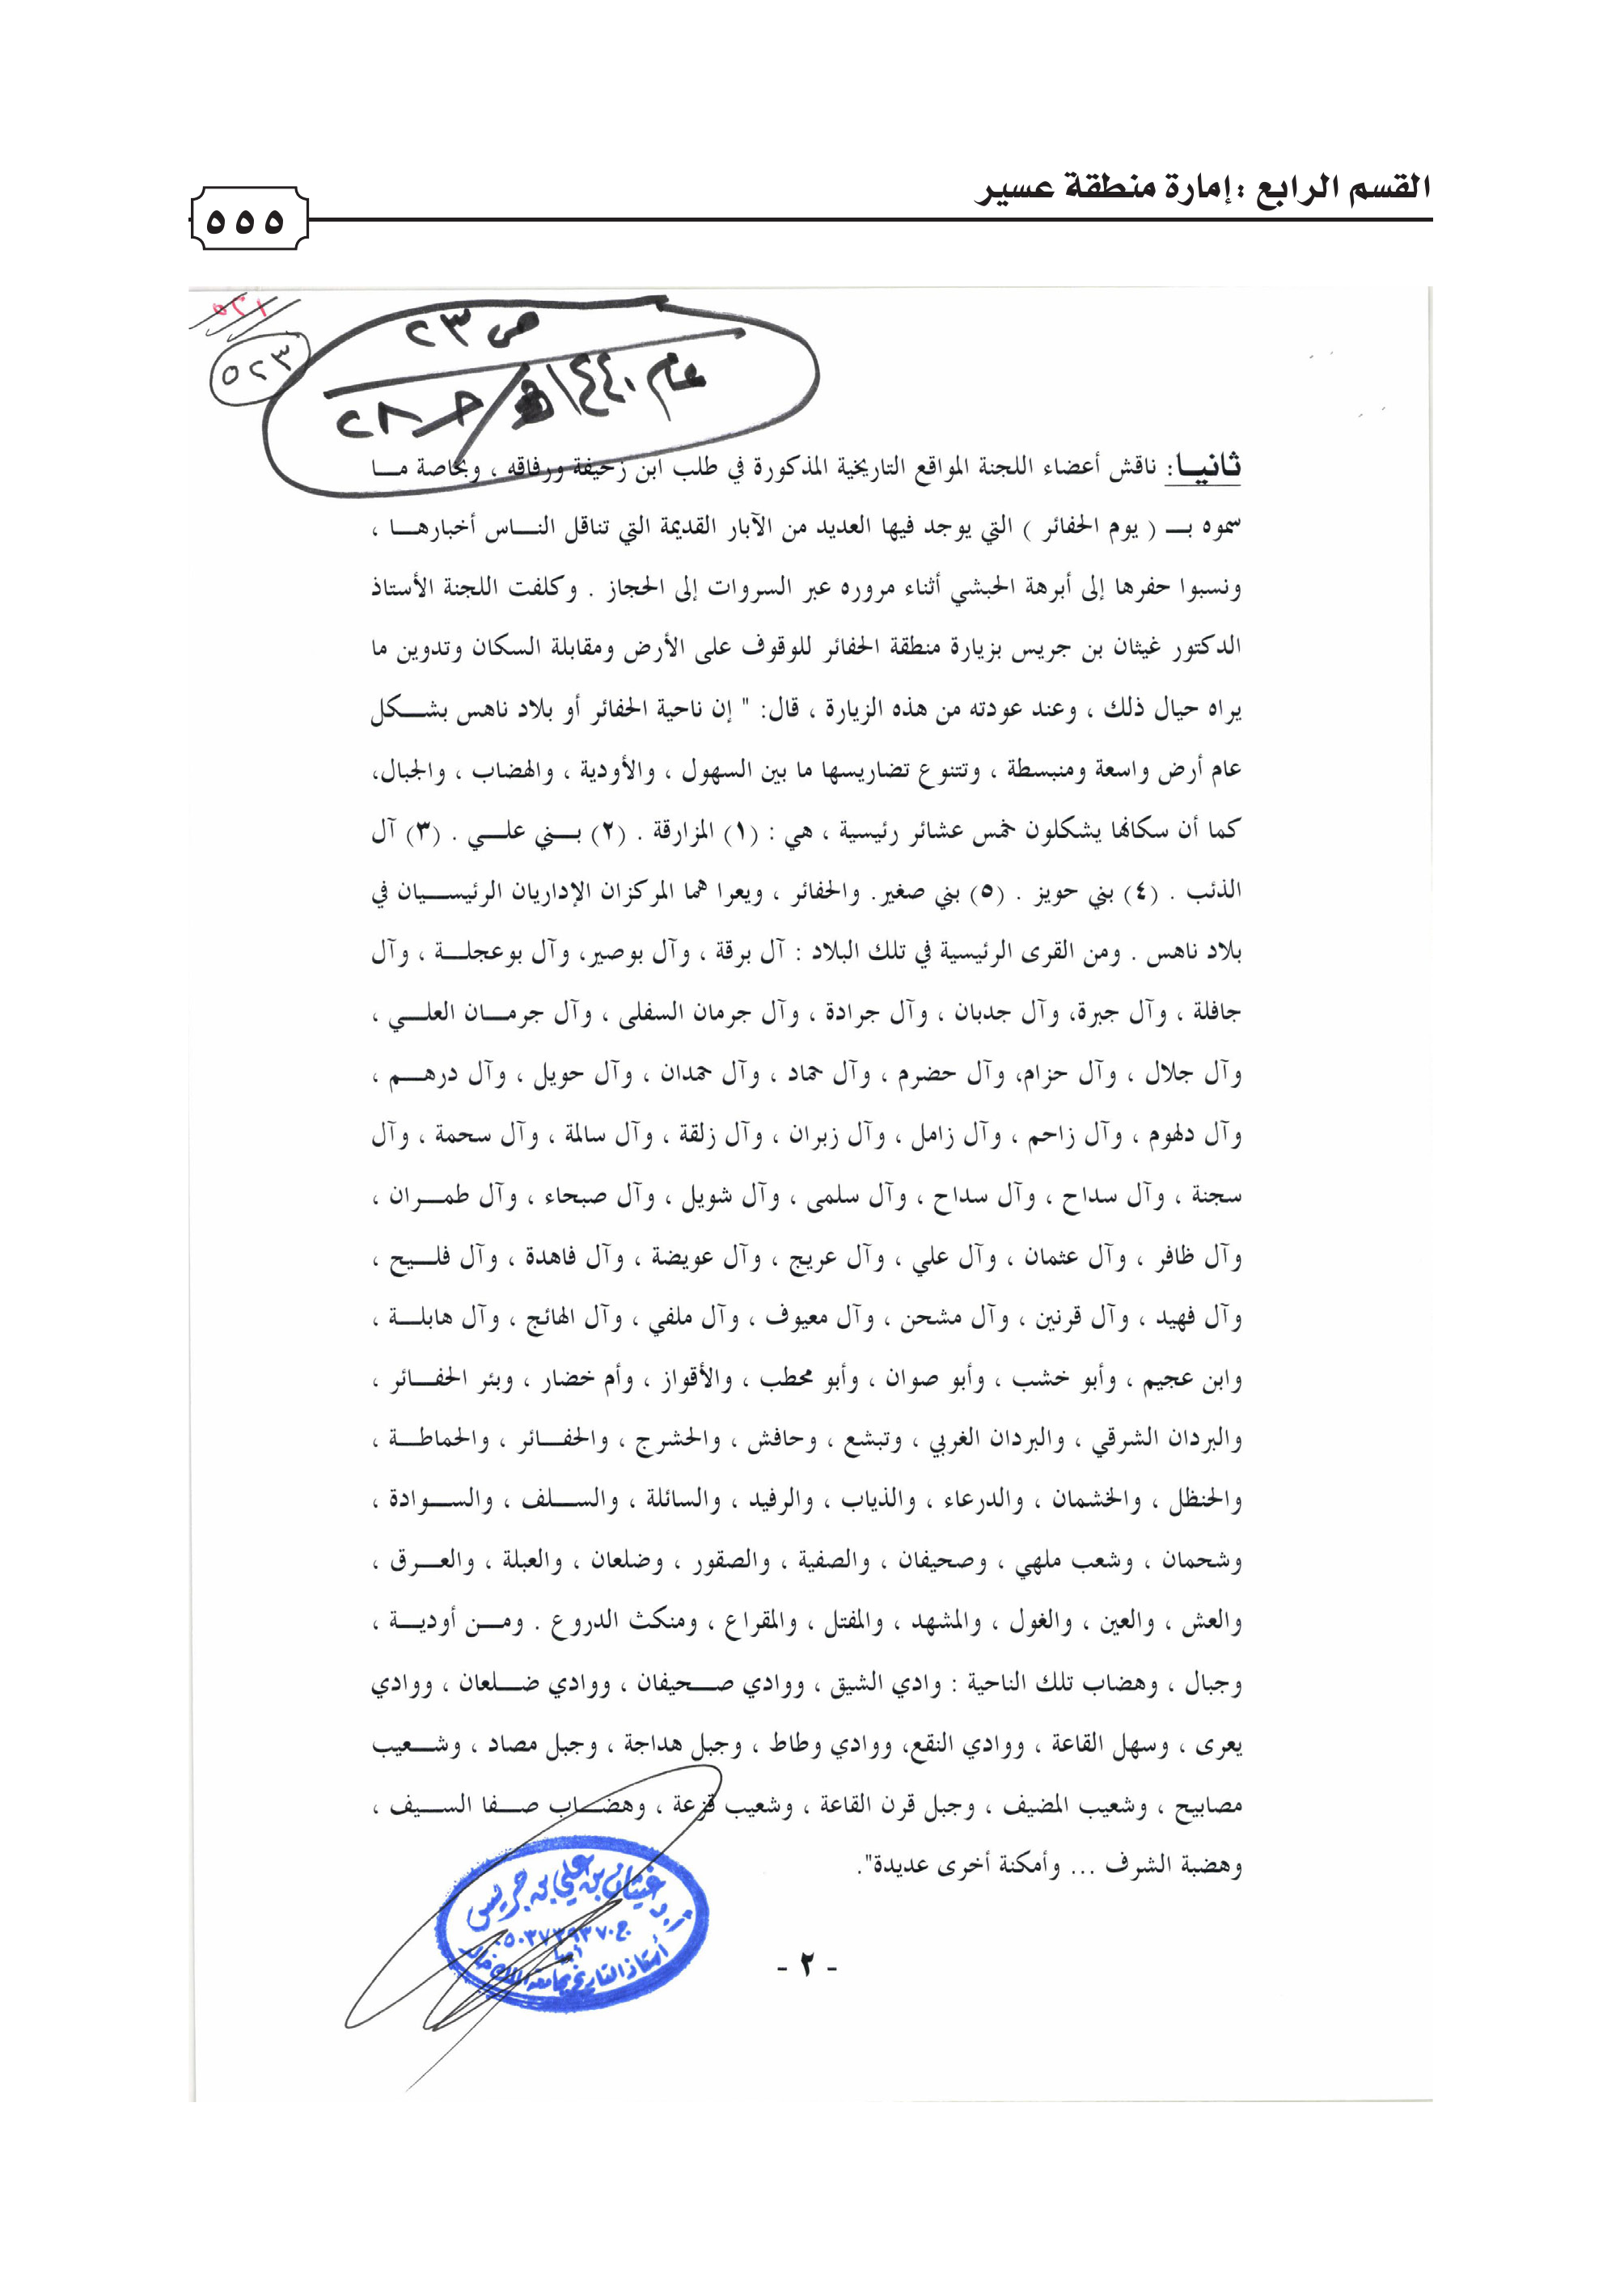 القسم الرابع :إمارة منطقة عسير
٥٥٥
٥٢١
٥٢٣
ص ٢٣
عام ١٤٤٠هـ / حـ ٢٨
ثانيـا: ناقش أعضاء اللجنة المواقع التاريخية المذكورة في طلب ابن زحيفة ورفاقه ، وبخاصة مـا
سموه بـ ( يوم الحفائر ) التي يوجد فيها العديد من الآبار القديمة التي تناقل النـاس أخبارهـا ،
ونسبوا حفرها إلى أبرهة الحبشي أثناء مروره عبر السروات إلى الحجاز . وكلفت اللجنة الأستاذ
الدكتور غيثان بن جريس بزيارة منطقة الحفائر للوقوف على الأرض ومقابلة السكان وتدوين ما
يراه حيال ذلك ، وعند عودته من هذه الزيارة ، قال: " إن ناحية الحفائر أو بلاد ناهس بشـكل
عام أرض واسعة ومنبسطة ، وتتنوع تضاريسها ما بين السهول ، والأودية ، والهضاب ، والجبال،
كما أن سكانها يشكلون خمس عشائر رئيسية ، هي : (١) المزارقة . (٢) بـني علـي . (٣) آل
الذئب . (٤) بني حويز . (٥) بني صغير. والحفائر ، ويعرا هما المركزان الإداريان الرئيسـيان في
بلاد ناهس . ومن القرى الرئيسية في تلك البلاد : آل برقة ، وآل بوصير، وآل بوعجلـة ، وآل
جافلة ، وآل جبرة، وآل جدبان ، وآل جرادة ، وآل جرمان السفلى ، وآل جرمـان العلـي ،
وآل جلال ، وآل حزام، وآل حضرم ، وآل حماد ، وآل حمدان ، وآل حويل ، وآل درهـم ،
وآل دلهوم ، وآل زاحم ، وآل زامل ، وآل زبران ، وآل زلقة ، وآل سالمة ، وآل سحمة ، وآل
سجنة ، وآل سداح ، وآل سداح ، وآل سلمى ، وآل شويل ، وآل صبحاء ، وآل طمـران ،
وآل ظافر ، وآل عثمان ، وآل علي ، وآل عريج ، وآل عويضة ، وآل فاهدة ، وآل فلـيح ،
وآل فهيد ، وآل قرنين ، وآل مشحن ، وآل معيوف ، وآل ملفي ، وآل الهائج ، وآل هابلـة ،
وابن عجيم ، وأبو خشب ، وأبو صوان ، وأبو محطب ، والأقواز ، وأم خضار ، وبئر الحفـائر ،
والبردان الشرقي ، والبردان الغربي ، وتبشع ، وحافش ، والحشرج ، والحفـائر ، والحماطـة ،
والحنظل ، والخشمان ، والدرعاء ، والذياب ، والرفيد ، والسائلة ، والسـلف ، والسـوادة ،
وشحمان ، وشعب ملهي ، وصحيفان ، والصفية ، والصقور ، وضلعان ، والعبلة ، والعـرق ،
والعش ، والعين ، والغول ، والمشهد ، والمفتل ، والمقراع ، ومنكث الدروع . ومـن أوديـة ،
وجبال ، وهضاب تلك الناحية : وادي الشيق ، ووادي صـحيفان ، ووادي ضـلعان ، ووادي
يعرى ، وسهل القاعة ، ووادي النقع، ووادي وطاط ، وجبل هداجة ، وجبل مصاد ، وشـعيب
مصابيح ، وشعيب المضيف ، وجبل قرن القاعة ، وشعيب قزعة ، وهضـاب صـفا السـيف ،
وهضبة الشرف ... وأمكنة أخرى عديدة".
أ.د غيثان بن علي بن جريس
ج٠٥٠٣٧٣٩٣٧٠
أبها
أستاذ التاريخ بجامعة الملك خالد
- ٢ -